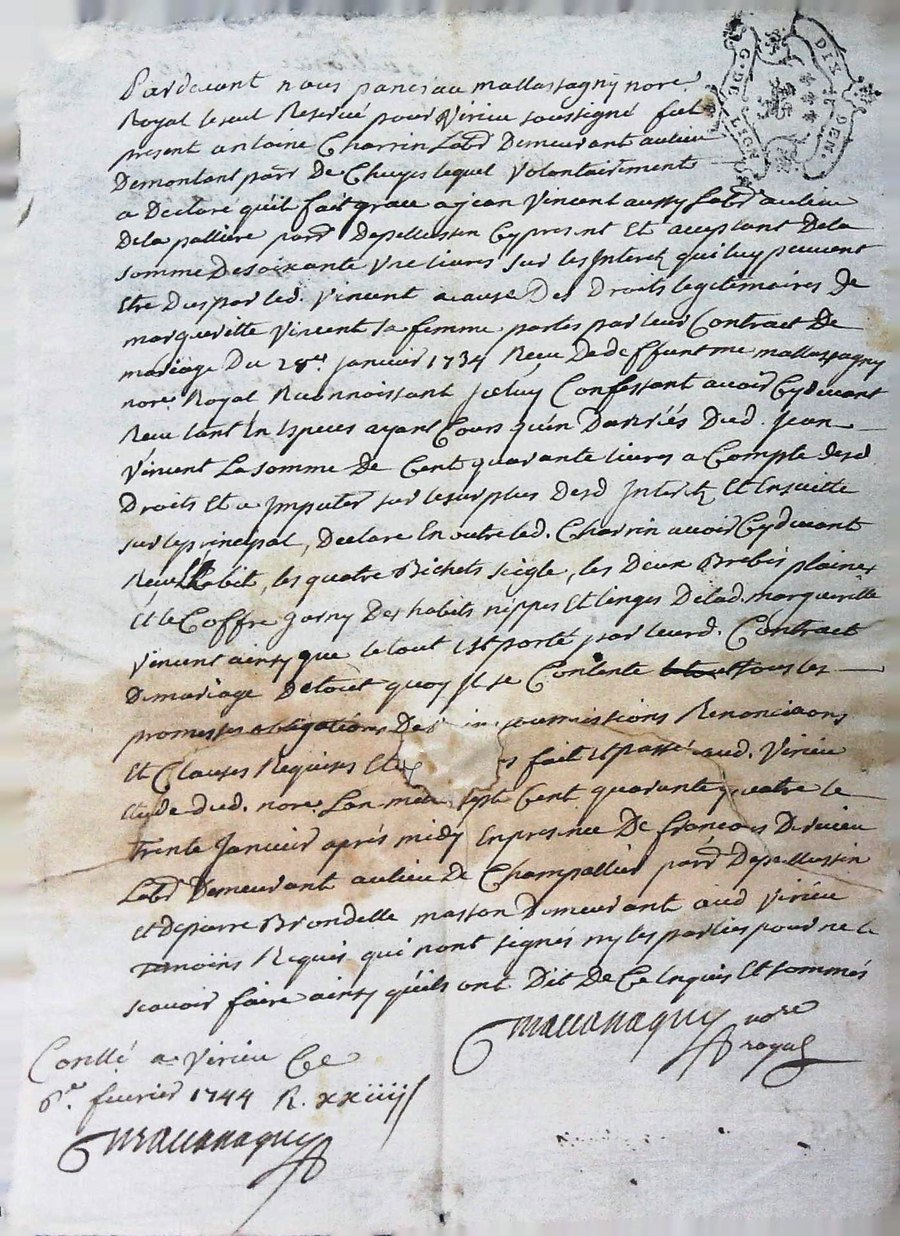 G. DE LION
DIX DEN.
Pardevant nous pancrau mallassagny nore
Royal le seul Reservé pour Virieu soussigné fut
present antoine Charrin Labr Demeurant au lieu
Demontant parr De Chuyes lequel Volontairement
a Declaré quil fait grace a jean Vincent aussy Labr au lieu
Dela palliere parr Depellussin Cy present Et aceptant Dela
somme Desoixante Vne livres sur les Interets qui luy peuvent
Etre Dus par led. Vincent a cause Des Droits legitimaires De
margueritte Vincent sa femme portes par leur Contract De
mariage Du 28e Janvier 1734 Receu De deffunt me mallassagny
nore Royal Reconnoissant Jceluy Confessant avoir Cydevant
Receu tant En Especes ayant Cours qu'en Danrées Dud. Jean
Vincent La somme De Cent quarante livres a Compte desd
Droits Et a Jmputer sur le surplus Desd Jnterets Et Ensuitte
sur le principal, Declare En outre led. Charrin avoir Cydevant
Receu L'habit, les quatre Bichets seigle, les Deux Brebis plaines
et le Coffre garny Des habits nippes Et linges De lad. margueritte
Vincent ainsy que le tout Est porté par leurd. Contract
De mariage De tout quoy Jl se Contente sous les
promesses obligations Des soumissions Renonciaons
Et Clauses Requises Et fait Et passé aud. Virieu
Etude dud. nore Lan mil sept Cent quarante quatre le
trente Janvier aprés midy En presence De francois Derieu
Labr Demeurant au lieu De Champallier parr Depellussin
et De pierre Brondelle masson Demeurant aud Virieu
temoins Requis qui nont signés ny les parties pour ne le
scavoir faire ainsy quils ont Dit De Ce Enquis Et sommés
Mallassagny nore
royal
Conllé a Virieu Ce
6e. fevrier 1744 R. xxiiijs
Mallassagny